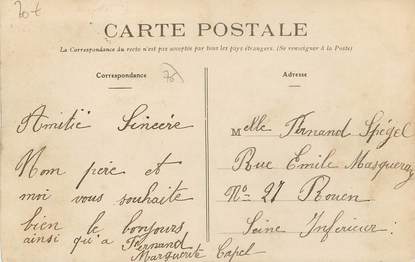 70 €
CARTE POSTALE
La Correspondance du recto n'est pas acceptée par tous les pays étrangers. (Se renseigner à la Poste)
Correspondance
70
Adresse
Amitié Sincère
Mon père et
moi vous souhaite
bien le bonjours
ainsi qu'a Fernand
Marguerite Capel
Melle Fernand Spégel
Rue Emile Masqueray
No 27 Rouen
Seine Inférieur